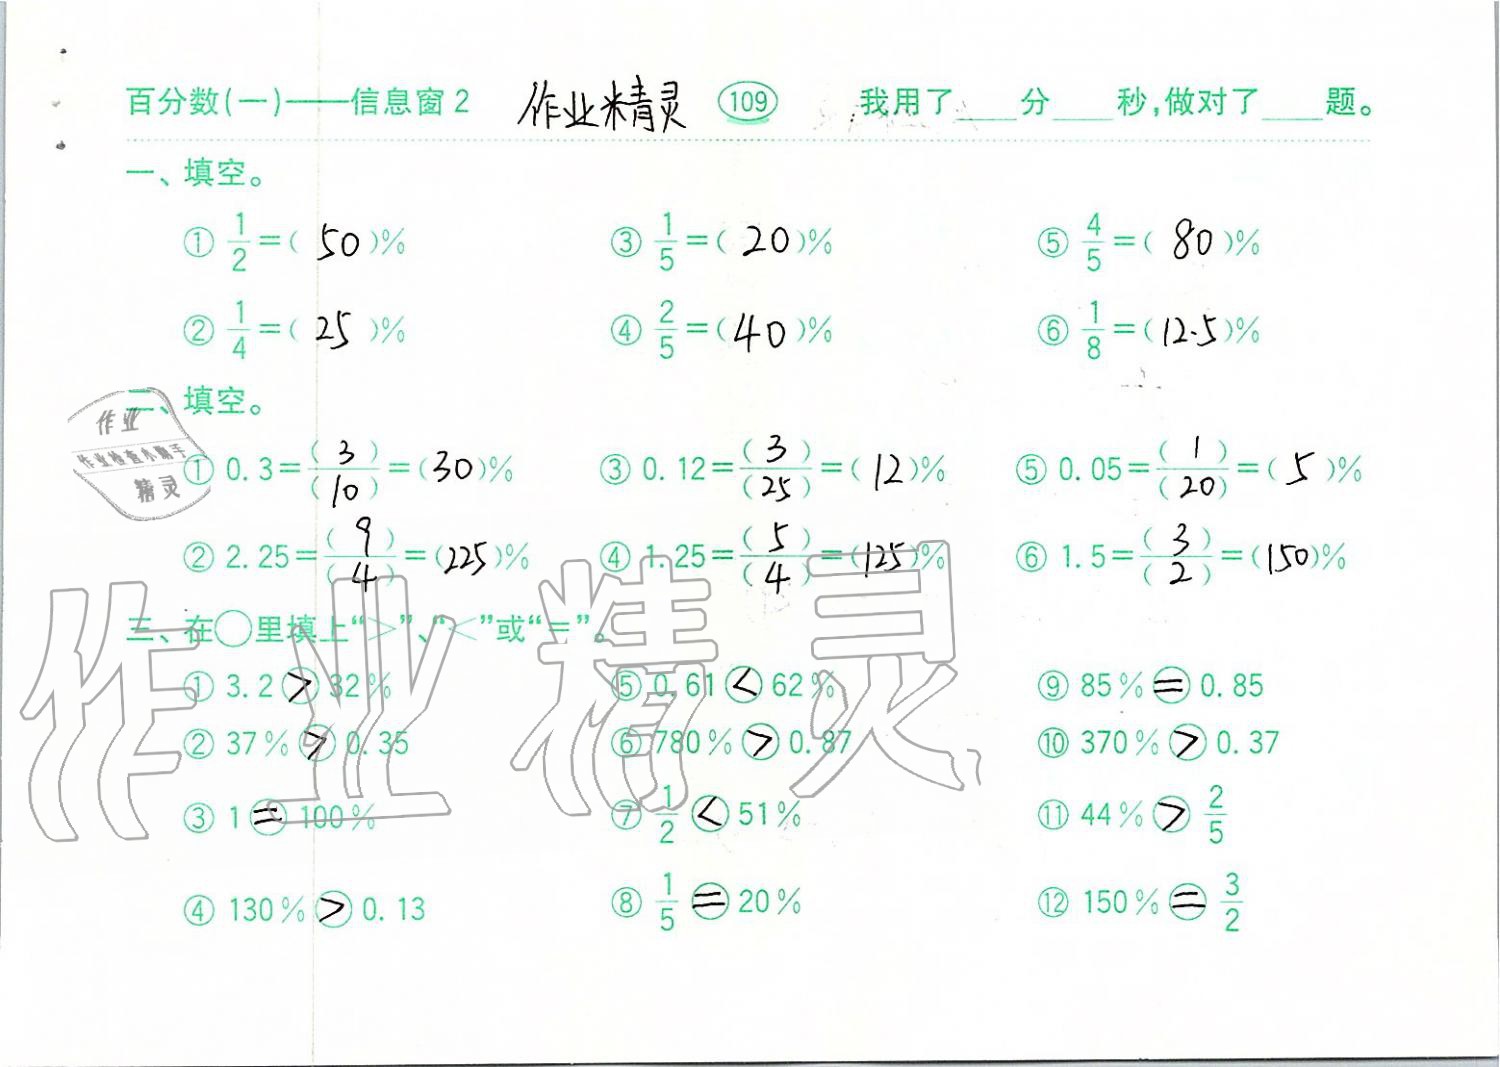 百分数(一)——信息窗2 作业精灵 109 我用了____分____秒,做对了____题。
一、填空。
① 1/2=( 50 )% ③ 1/5=( 20 )% ⑤ 4/5=( 80 )%
② 1/4=( 25 )% ④ 2/5=( 40 )% ⑥ 1/8=( 12.5 )%
二、填空。
作业
作业检查小助手
精灵
① 0.3=(3)/(10)=(30)% ③ 0.12=(3)/(25)=(12)% ⑤ 0.05=(1)/(20)=(5)%
② 2.25=(9)/(4)=(225)% ④ 1.25=(5)/(4)=(125)% ⑥ 1.5=(3)/(2)=(150)%
三、在○里填上“>”、“<”或“=”。
作业精灵
① 3.2 > 32% ⑤ 0.61 < 62% ⑨ 85% = 0.85
② 37% > 0.35 ⑥ 780% > 0.87 ⑩ 370% > 0.37
③ 1 = 100% ⑦ 1/2 < 51% ⑪ 44% > 2/5
④ 130% > 0.13 ⑧ 1/5 = 20% ⑫ 150% = 3/2